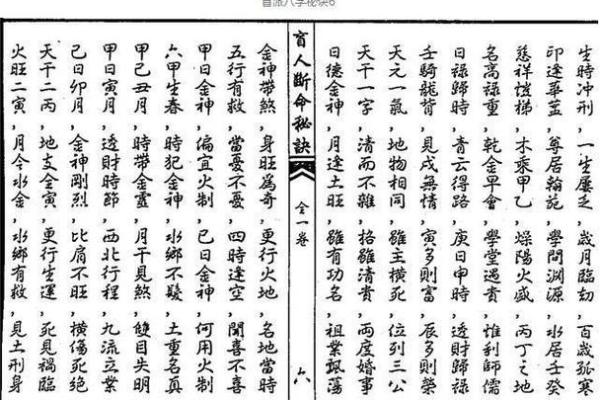 盲派八字秘诀6
生時冲刑，一生屢乏，歲月臨劫，百歲孤寒
印逢華蓋，尊居翰苑，學問淵源，水居壬癸
慈祥愷悌，木乘甲乙，燥陽火盛，丙丁之地
名高祿重，乾金早會，學堂遇貴，惟利師儒
日祿歸時，青云得路，庚日申時，透財歸祿
壬騎龍背，見戌無情，寅多則富，辰多則榮
天元一氣，地物相同，雖主橫死，位列三公
天干一字，清而不雜，格雖清貴，兩度婚事
日德金神，月逢土旺，雖有功名，祖業飄蕩
盲人斷命秘訣
全一卷
六
金神帶煞，身旺為奇，更行火地，名地當時
五行有救，當憂不憂，四時逢空，聞喜不喜
甲日金神，偏宜火制，巳日金神，何用火制
六甲生春，時犯金神，水鄉不髮，土重名真
甲己丑月，時帶金靈，月干見煞，雙目失明
甲日寅月，透財時節，西北行程，九流立業
己日卯月，金神剛烈，比肩不旺，橫傷死絕
天干二丙，地支全寅，更行生運，死見禍臨
火旺二寅，月令水金，水鄉有救，見土刑身